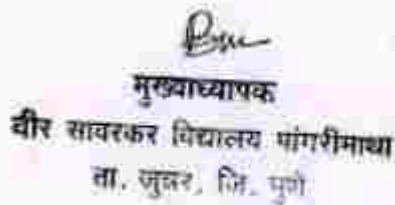 मुख्याध्यापक
वीर सावरकर विद्यालय पांगरीमाथा
ता. जुन्नर, जि. पुणे